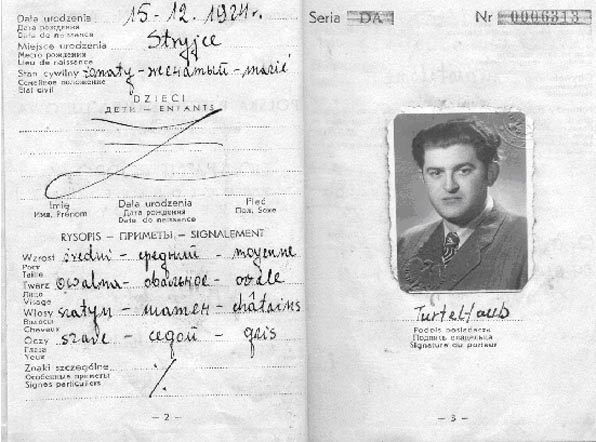 Data urodzenia 15-12. 1924r.
Дата рождения
Date de naissance
Miejsce urodzenia Stryjce
Место рождения
Lieu de naissance
Stan cywilny żonaty - женатый - marié
Семейное положение
Etat civil
DZIECI
ДЕТИ — ENFANTS
Imię Data urodzenia Płeć
Имя, Prénom Дата рождения Пол, Sexe
Date de naissance
RYSOPIS — ПРИМЕТЫ — SIGNALEMENT
Wzrost średni - средний - moyenne
Рост
Taille
Twarz owalna - овальное - ovale
Лицо
Visage
Włosy szatyn - шатен - châtains
Волосы
Cheveux
Oczy szare - серой - gris
Глаза
Yeux
Znaki szczególne
Особенные приметы
Signes particuliers
— 2 —
Seria DA Nr 0006313
Turteltaub
Podpis posiadacza
Подпись владельца
Signature du porteur
— 3 —